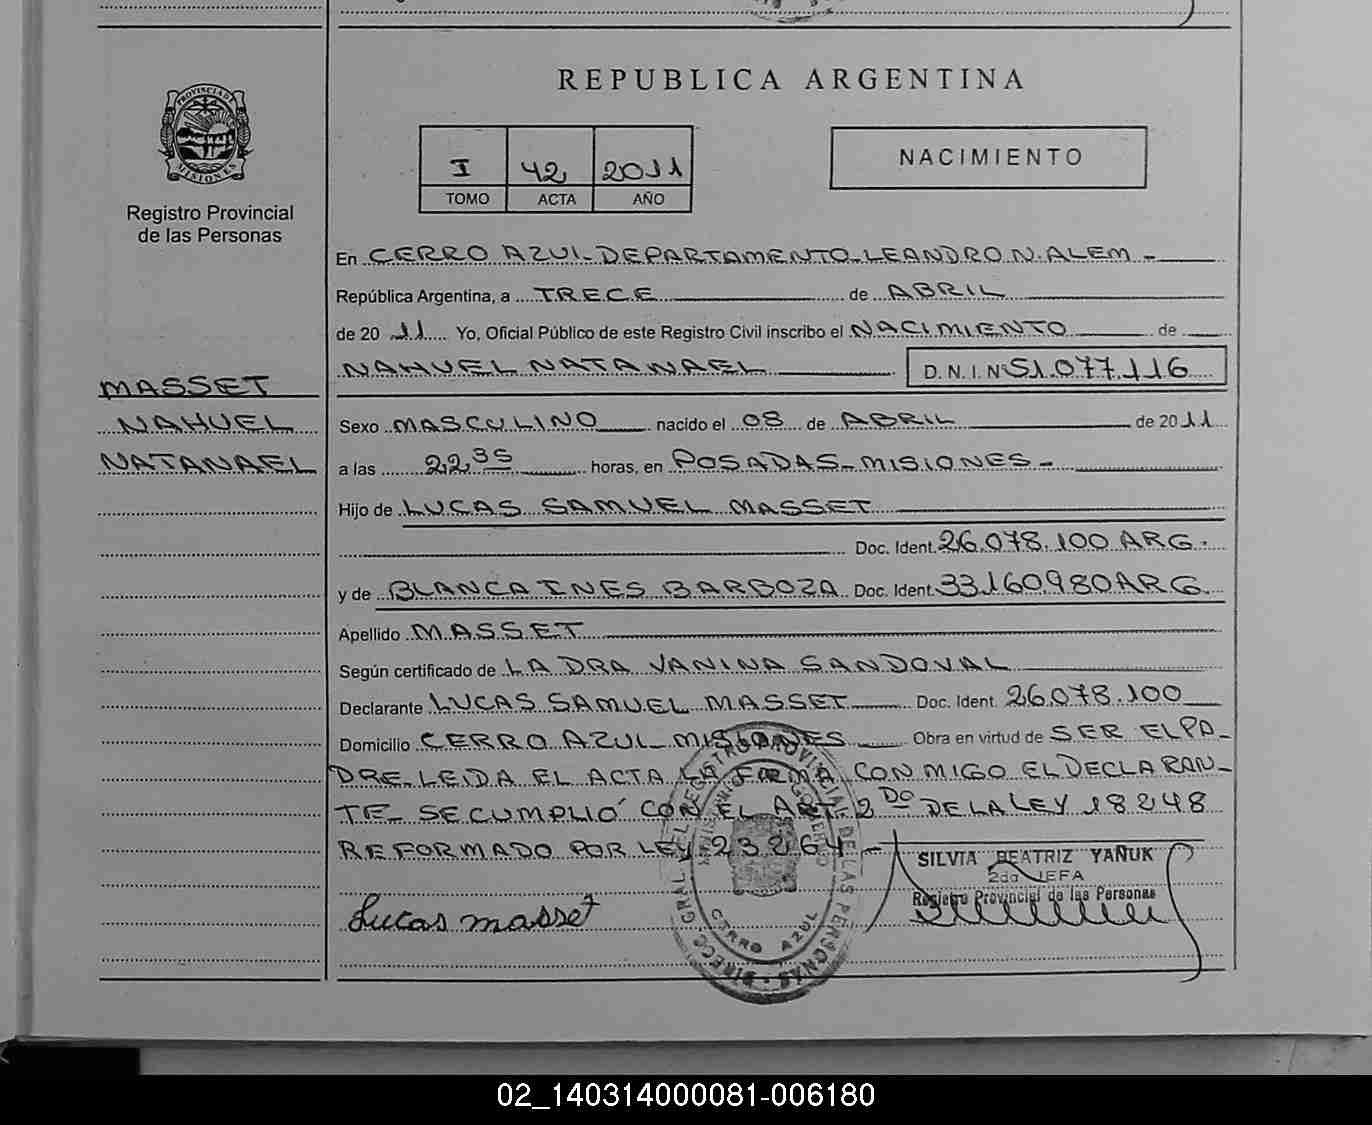 REPUBLICA ARGENTINA
PROVINCIA DE
MISIONES
Registro Provincial
de las Personas
I 42 2011
TOMO ACTA AÑO
NACIMIENTO
En CERRO AZUL-DEPARTAMENTO-LEANDRO N. ALEM-
República Argentina, a TRECE de ABRIL
de 2011 Yo, Oficial Público de este Registro Civil inscribo el NACIMIENTO de
NAHUEL NATANAEL D.N.I. Nº 51.077.116
MASSET
NAHUEL
NATANAEL
Sexo MASCULINO nacido el 08 de ABRIL de 2011
a las 22,35 horas, en POSADAS-MISIONES-
Hijo de LUCAS SAMUEL MASSET
Doc. Ident. 26.078.100 ARG.
y de BLANCA INES BARBOZA Doc. Ident. 33.160.980 ARG.
Apellido MASSET
Según certificado de LA DRA VANINA SANDOVAL
Declarante LUCAS SAMUEL MASSET Doc. Ident. 26.078.100
Domicilio CERRO AZUL-MISIONES Obra en virtud de SER EL PA-
DRE-LEIDA EL ACTA LA FIRMA CONMIGO EL DECLARAN-
TE- SE CUMPLIÓ CON EL ART. 2DO DE LA LEY 18248
REFORMADO POR LEY 23264-
SILVIA BEATRIZ YAÑUK
2da JEFA
Registro Provincial de las Personas
Lucas masset
DIRECC. GRAL. DEL REGISTRO PROVINCIAL DE LAS PERSONAS
MINISTERIO GOBIERNO
CERRO AZUL
02_140314000081-006180